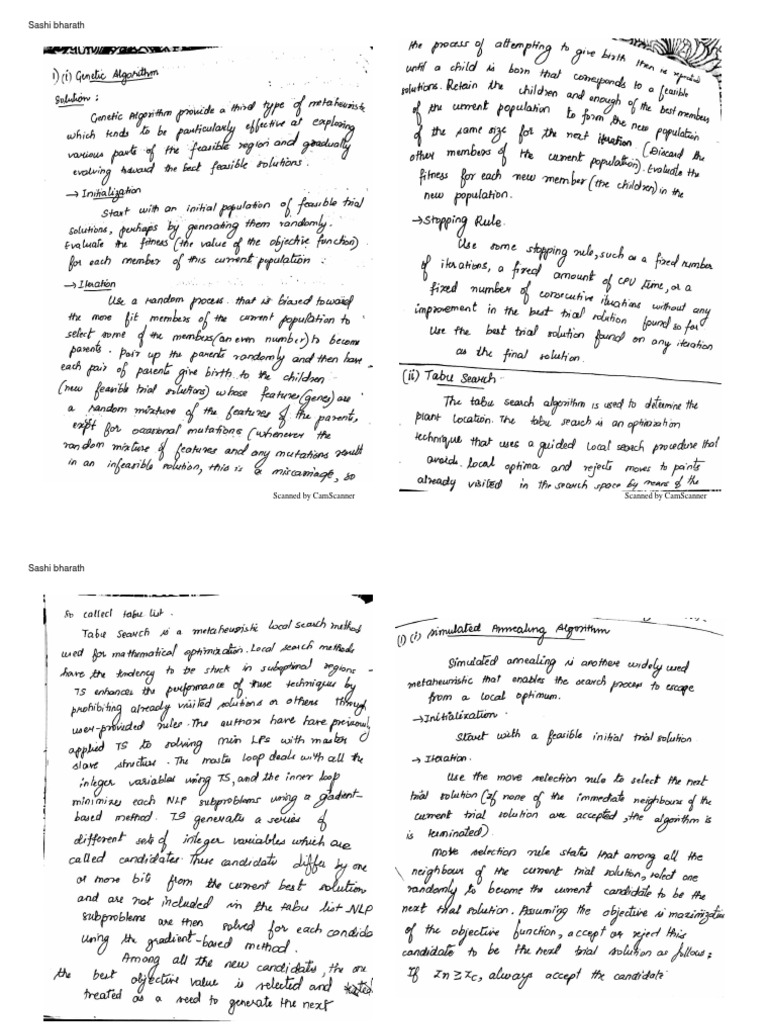 Sashi bharath
1) (i) Genetic Algorithm
Solution :
Genetic Algorithm provide a third type of metaheuristic
which tends to be particularly effective at exploring
various parts of the feasible region and gradually
evolving toward the best feasible solutions.
→ Initialization
Start with an initial population of feasible trial
solutions, perhaps by generating them randomly.
Evaluate the fitness (the value of the objective function)
for each member of this current population :
→ Iteration
Use a random process that is biased toward
the more fit members of the current population to
select some of the members (an even number) to become
parents. Pair up the parents randomly and then have
each pair of parents give birth to the children
(new feasible trial solutions) whose features (genes) are
a random mixture of the features of the parents,
except for occasional mutations (whenever the
random mixture of features and any mutations result
in an infeasible solution, this is a miscarriage, so
Scanned by CamScanner
the process of attempting to give birth then is repeated
until a child is born that corresponds to a feasible
solutions. Retain the children and enough of the best members
of the current population to form the new population
of the same size for the next iteration. (Discard the
other members of the current population). Evaluate the
fitness for each new member (the children) in the
new population.
→ Stopping Rule.
Use some stopping rule, such as a fixed number
of iterations, a fixed amount of CPU time, or a
fixed number of consecutive iterations without any
improvement in the best trial solution found so far
Use the best trial solution found on any iteration
as the final solution.
(ii) Tabu Search
The tabu search algorithm is used to determine the
plant location. The tabu search is an optimization
technique that uses a guided local search procedure that
avoids local optima and rejects moves to points
already visited in the search space by means of the
Scanned by CamScanner
Sashi bharath
so called tabu list.
Tabu Search is a metaheuristic local search method
used for mathematical optimization. Local search methods
have the tendency to be stuck in suboptimal regions
TS enhances the performance of these techniques by
prohibiting already visited solutions or others through
user-provided rules. The authors have have previously
applied TS to solving min LPs with master
slave structure. The master loop deals with all the
integer variables using TS, and the inner loop
minimizes each NLP subproblems using a gradient-
based method. TS generates a series of
different sets of integer variables which are
called candidates. These candidate differ by one
or more bits from the current best solution
and are not included in the tabu list. NLP
subproblems are then solved for each candida
using the gradient-based method.
Among all the new candidates, the one
the best objective value is selected and
treated as a seed to generate the next
(1) (i) Simulated Annealing Algorithm
Simulated annealing is another widely used
metaheuristic that enables the search process to escape
from a local optimum.
→ Initialization
Start with a feasible initial trial solution
→ Iteration
Use the move selection rule to select the next
trial solution (If none of the immediate neighbours of the
current trial solution are accepted, the algorithm is
is terminated).
Move selection rule states that among all the
neighbour of the current trial solution, select one
randomly to become the current candidate to be the
next trial solution. Assuming the objective is maximizatio
of the objective function, accept or reject this
candidate to be the next trial solution as follows :
If Zn ≥ Zc, always accept the candidate